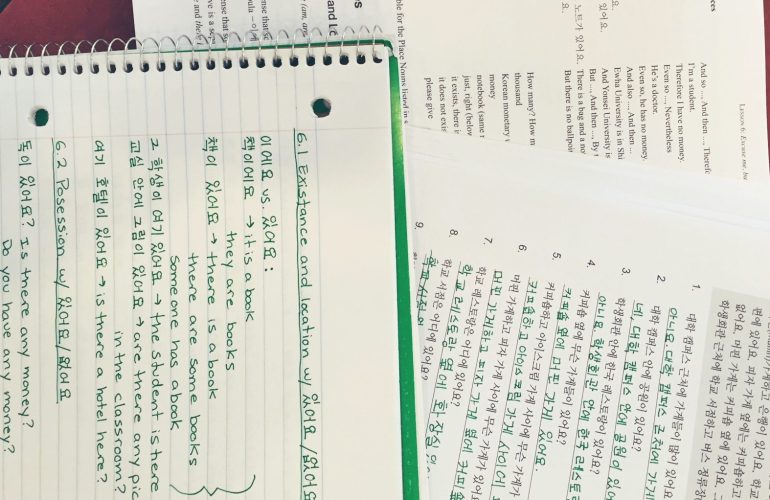 6.1 Existance and location w/ 있어요/없어요
이에요 vs. 있어요 :
책이에요 → it is a book
they are books
책이 있어요 → there is a book
there are some books
someone has a book
그 학생이 여기 있어요 → the student is here
교실 안에 그림이 있어요 → are there any pic
in the classroom?
여기 호텔이 있어요 → is there a hotel here?
6.2 Posession w/ 있어요/없어요
돈이 있어요? Is there any money?
Do you have any money?
and Lo
ble for the Place Nouns listed in
Lesson 6: Excuse me, bu
And so …, And then …, Therefo
I'm a student.
Therefore I have no money.
Even so …, Nevertheless
He's a doctor.
Even so, he has no money.
And also …, And then …
Ewha University is in Shi
And Yonsei University is
But …, And then …, By
노트가 있어요. There is a bag and a no
But there is no ballpoi
있어요.
How many? How m
thousand
Korean monetary
money
notebook (same
just, right (below
it exists, there i
it does not exis
please give
편에 있어요. 피자 가게 옆에는 커피숍하고 은행이 있어요. 학교
없어요. 머핀 가게는 커피숍 옆에 있어요. 그
학생회관 근처에 학교 서점하고 버스 정류장
1. 대학 캠퍼스 근처에 가게들이 많이 있어요?
아니요. 대학 캠퍼스 근처에 가게
2. 대학 캠퍼스 안에 공원이 있어요?
네, 대학 캠퍼스 안에 공원이 있어
3. 학생회관 안에 한국 레스토랑이 있어요?
아니요. 학생회관 안에 한국 레스토
4. 커피숍 옆에 무슨 가게들이 있어요?
커피숍 옆에 머핀 가게 있어요
5. 커피숍하고 아이스크림 가게 사이에 무슨 가
커피숍하고 아이스크림 가게 사이에
6. 머핀 가게하고 피자 가게 사이에 무슨 가게가
머핀 가게하고 피자 가게 옆에 커피숍
7. 학교 레스토랑은 어디에 있어요?
학교 레스토랑 옆에 화장실
8. 학교 서점은 어디에 있어요?
학교 서점
9.